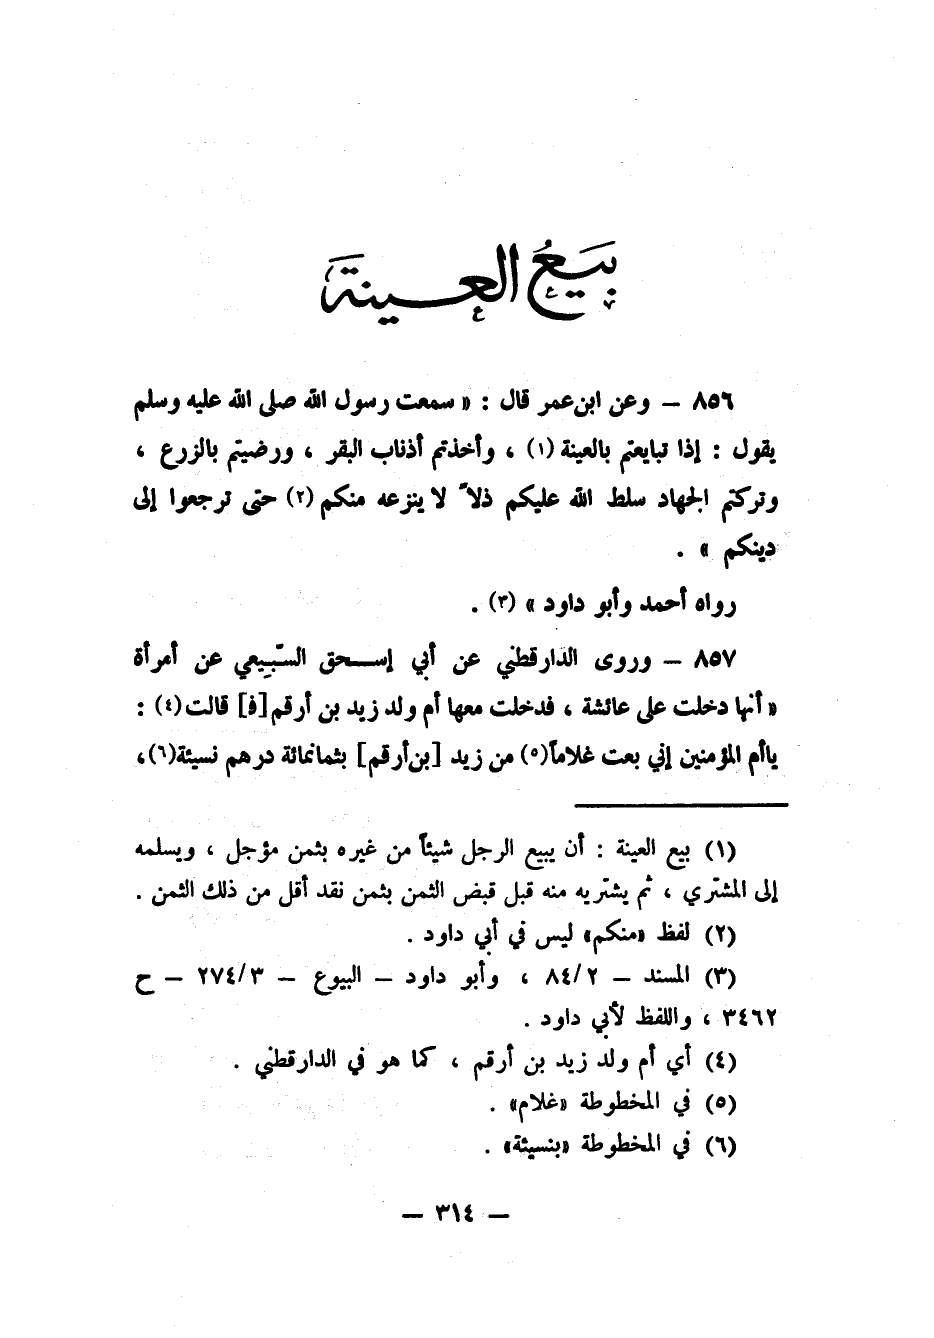 بيع العينة
٨٥٦ – وعن ابن عمر قال : « سمعت رسول الله صلى الله عليه وسلم
يقول : إذا تبايعتم بالعينة (١) ، وأخذتم أذناب البقر ، ورضيتم بالزرع ،
وتركتم الجهاد سلط الله عليكم ذلاً لا ينزعه منكم (٢) حتى ترجعوا إلى
دينكم » .
رواه أحمد وأبو داود » (٣) .
٨٥٧ – وروى الدارقطني عن أبي إسحق السّبيعي عن أمرأة
« أنها دخلت على عائشة ، فدخلت معها أم ولد زيد بن أرقم [فـ] قالت (٤) :
ياأم المؤمنين إني بعت غلاماً (٥) من زيد [بن أرقم] بثمانمائة درهم نسيئة (٦) ،
(١) بيع العينة : أن يبيع الرجل شيئاً من غيره بثمن مؤجل ، ويسلمه
إلى المشتري ، ثم يشتريه منه قبل قبض الثمن بثمن نقد أقل من ذلك الثمن .
(٢) لفظ «منكم» ليس في أبي داود .
(٣) المسند – ٨٤/٢ ، وأبو داود – البيوع – ٢٧٤/٣ – ح
٣٤٦٢ ، واللفظ لأبي داود .
(٤) أي أم ولد زيد بن أرقم ، كما هو في الدارقطني .
(٥) في المخطوطة «غلام» .
(٦) في المخطوطة «بنسيئة» .
– ٣١٤ –